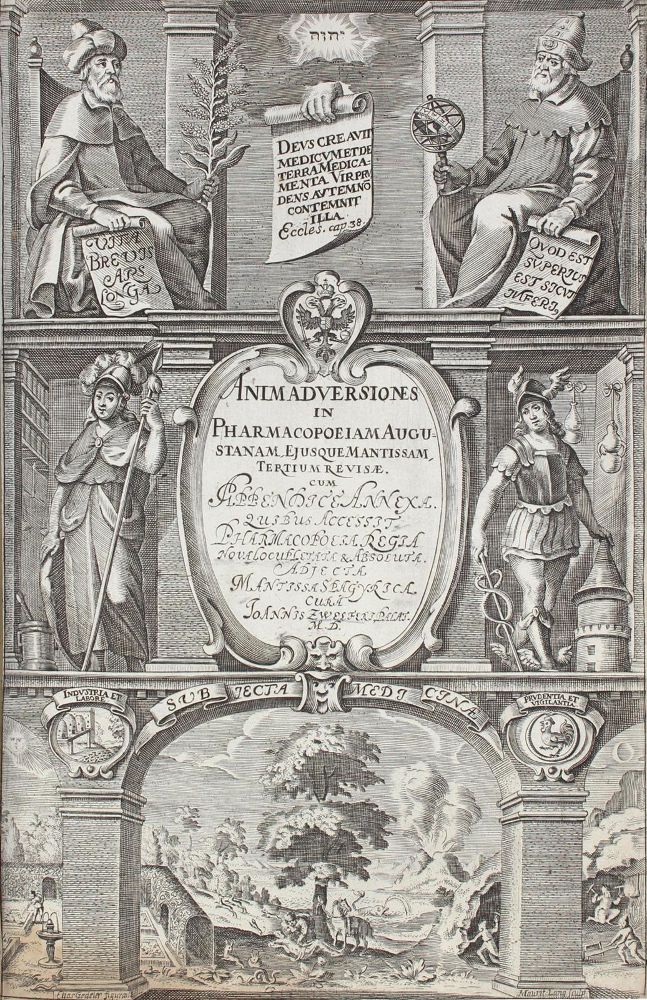 יהוה
DEVS CREAVIT
MEDICVM ET DE
TERRA MEDICA-
MENTA. VIR PRV
DENS AVTEM NŌ
CONTEMNIT
ILLA
Eccles. cap. 38
VITA
BREVIS
ARS
LONGA
QVOD EST
SVPERIUS
EST SICVT
INFERI,
ANIMADVERSIONES
IN
PHARMACOPOEIAM AUGU-
STANAM, EJUSQUE MANTISSAM,
TERTIUM REVISÆ,
CUM
APPENDICE ANNEXA.
QUIBUS ACCESSIT
PHARMACOPOEIA REGIA
NOVA LOCUPLETATA & ABSOLUTA.
ADJECTA
MANTISSA SPAGYRICA.
CURA
IOANNIS ZWELFERI PALAT.
M.D.
INDVSTRIA ET
LABORE
SUB JECTA MEDI CINÆ
PRVDENTIA ET
VIGILANTIA
figuravit
Maurit: Lang sculp.